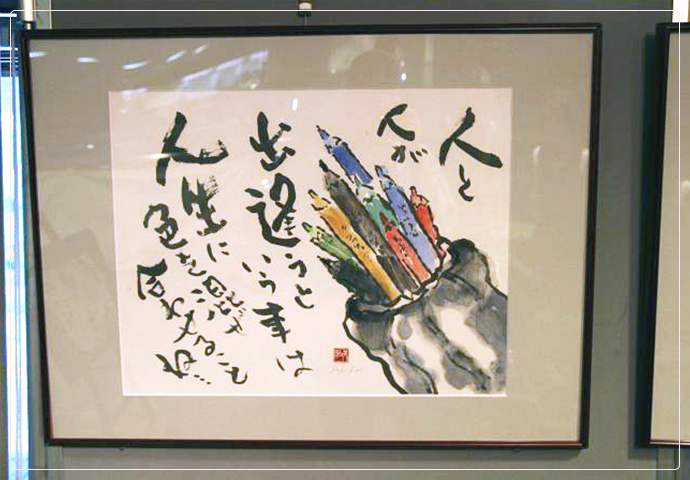 人と
人が
出逢うと
いう事は
人生に
色を混ぜ
合わせること